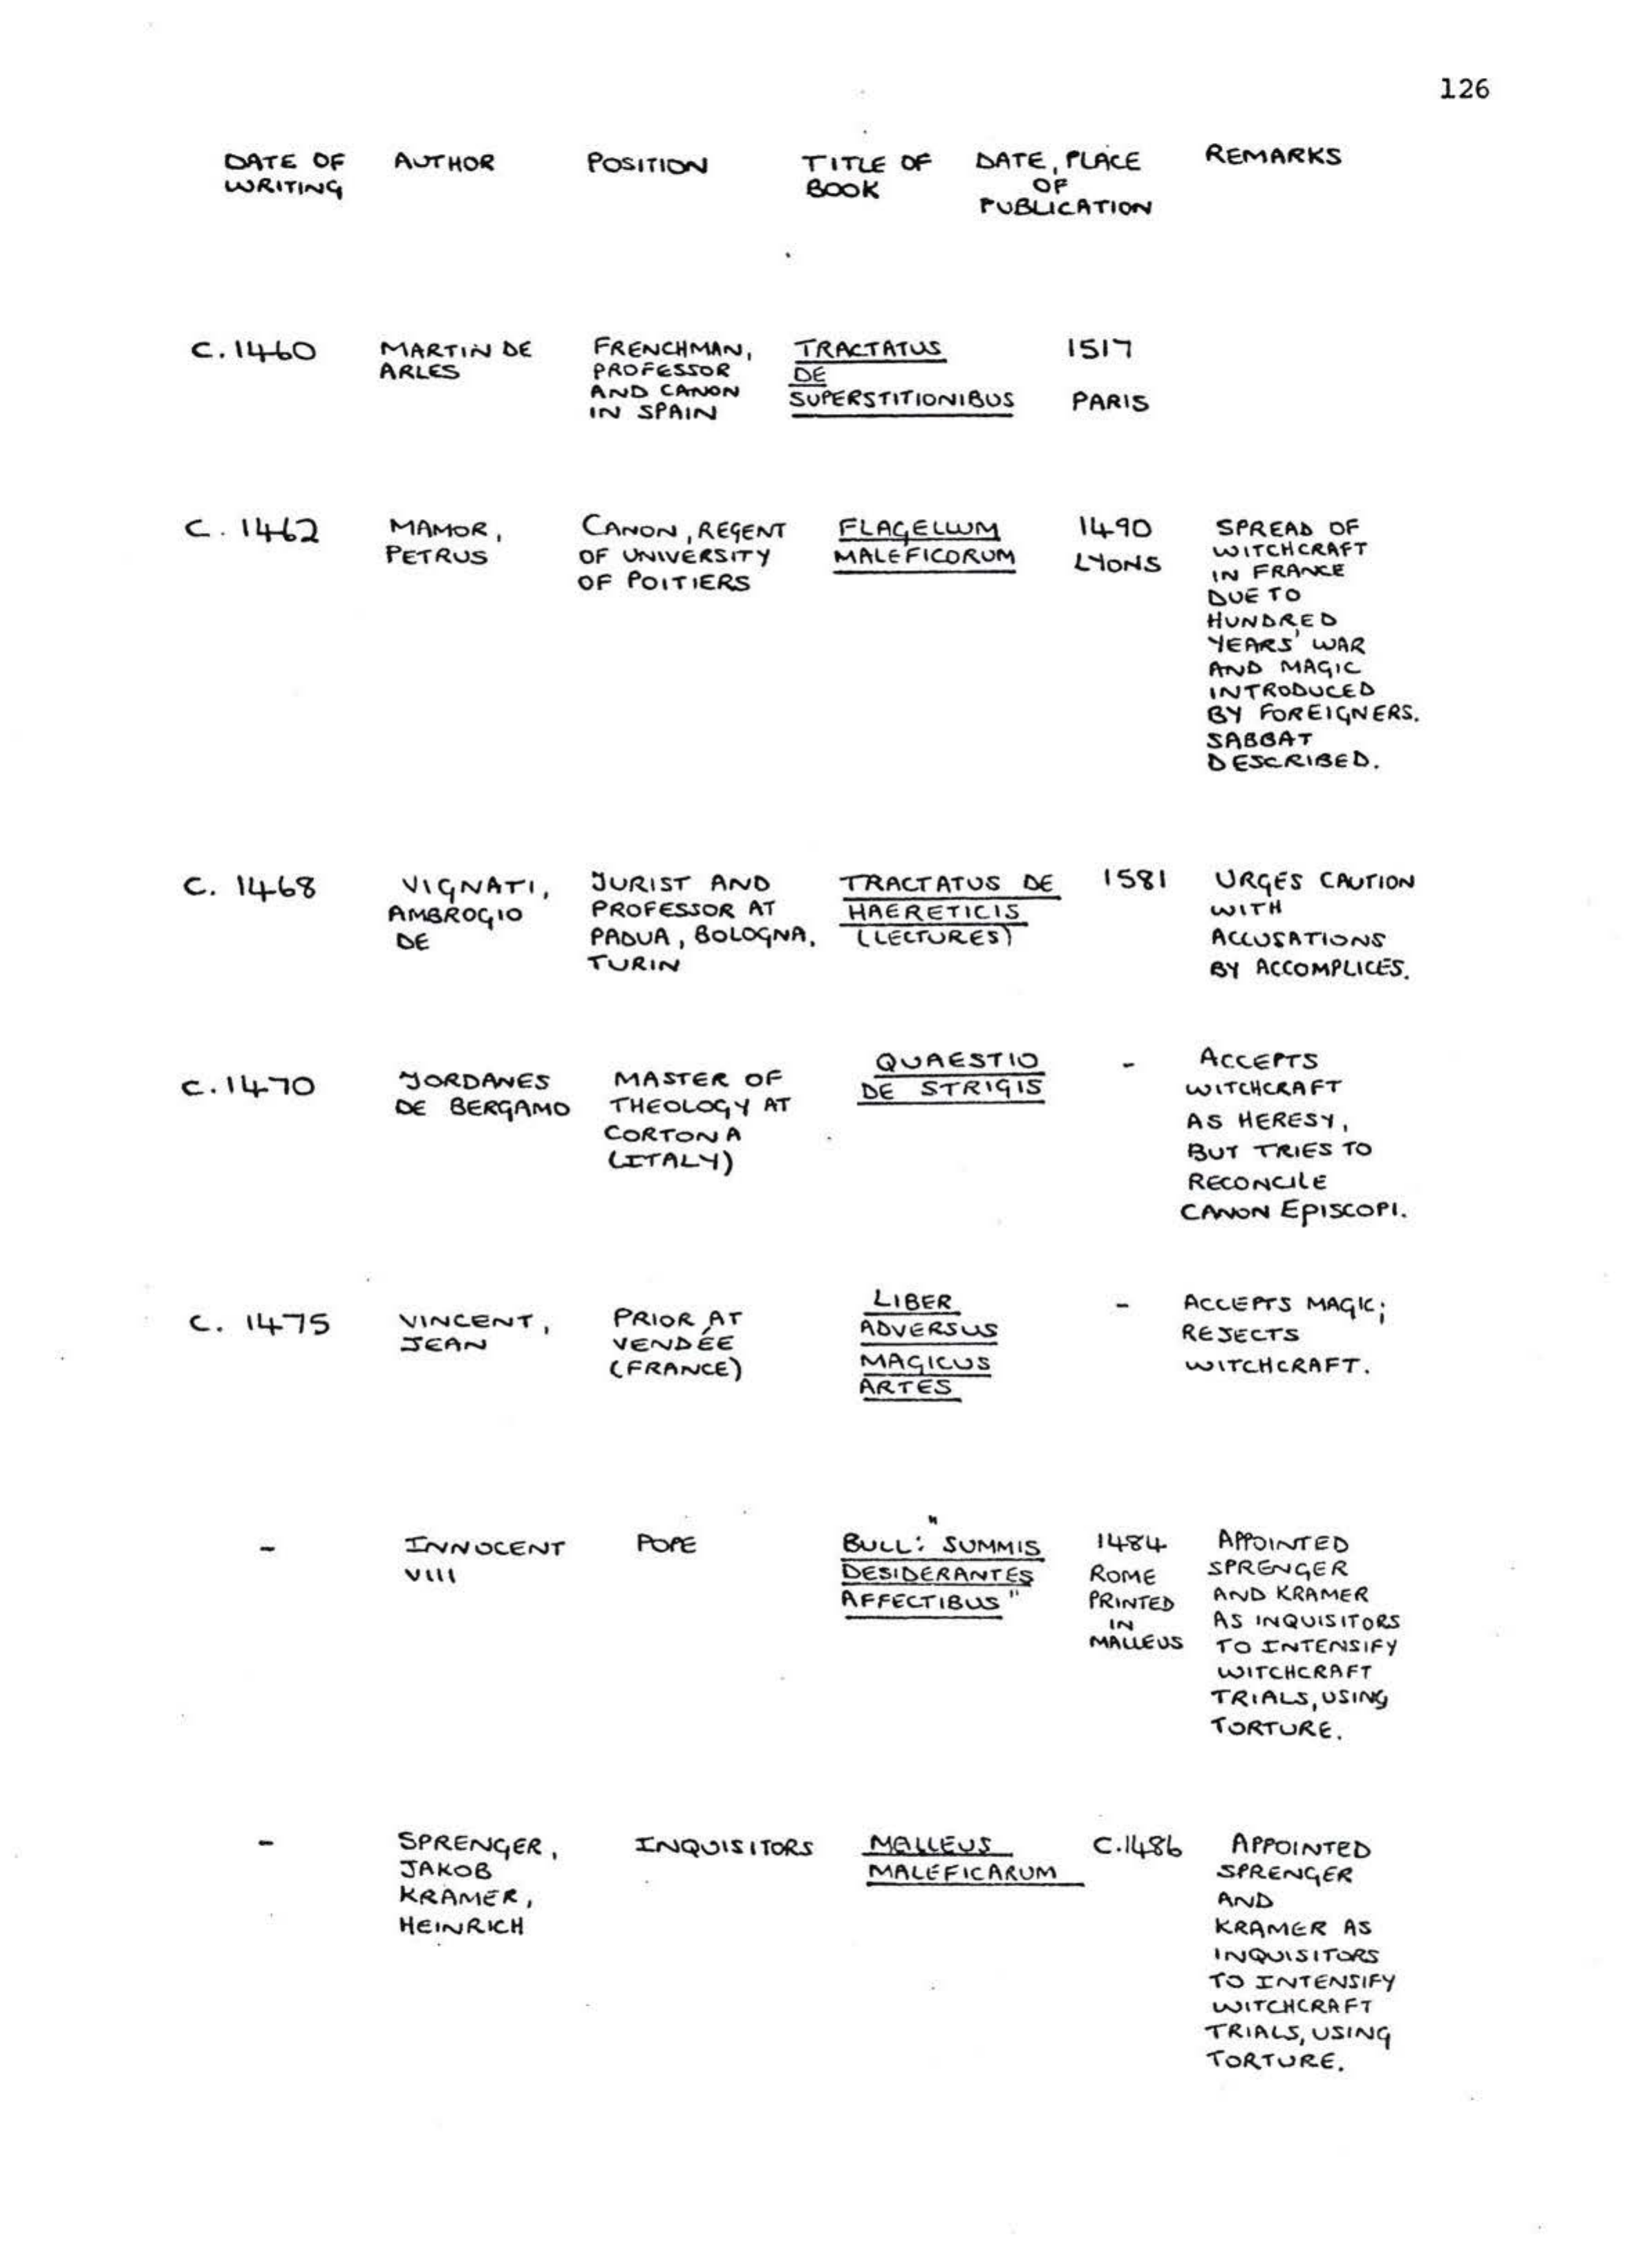 126
DATE OF WRITING
AUTHOR
POSITION
TITLE OF BOOK
DATE, PLACE OF PUBLICATION
REMARKS
C. 1460
MARTIN DE
ARLES
FRENCHMAN,
PROFESSOR
AND CANON
IN SPAIN
TRACTATUS
DE
SUPERSTITIONIBUS
1517
PARIS
C. 1462
MAMOR,
PETRUS
CANON, REGENT
OF UNIVERSITY
OF POITIERS
FLAGELLUM
MALEFICORUM
1490
LYONS
SPREAD OF
WITCHCRAFT
IN FRANCE
DUE TO
HUNDRED
YEARS' WAR
AND MAGIC
INTRODUCED
BY FOREIGNERS.
SABBAT
DESCRIBED.
C. 1468
VIGNATI,
AMBROGIO
DE
JURIST AND
PROFESSOR AT
PADUA, BOLOGNA,
TURIN
TRACTATUS DE
HAERETICIS
(LECTURES)
1581
URGES CAUTION
WITH
ACCUSATIONS
BY ACCOMPLICES.
C. 1470
JORDANES
DE BERGAMO
MASTER OF
THEOLOGY AT
CORTONA
(ITALY)
QUAESTIO
DE STRIGIS
-
ACCEPTS
WITCHCRAFT
AS HERESY,
BUT TRIES TO
RECONCILE
CANON EPISCOPI.
C. 1475
VINCENT,
JEAN
PRIOR AT
VENDÉE
(FRANCE)
LIBER
ADVERSUS
MAGICUS
ARTES
-
ACCEPTS MAGIC;
REJECTS
WITCHCRAFT.
-
INNOCENT
VIII
POPE
BULL: "SUMMIS
DESIDERANTES
AFFECTIBUS"
1484
ROME
PRINTED
IN
MALLEUS
APPOINTED
SPRENGER
AND KRAMER
AS INQUISITORS
TO INTENSIFY
WITCHCRAFT
TRIALS, USING
TORTURE.
-
SPRENGER,
JAKOB
KRAMER,
HEINRICH
INQUISITORS
MALLEUS
MALEFICARUM
C.1486
APPOINTED
SPRENGER
AND
KRAMER AS
INQUISITORS
TO INTENSIFY
WITCHCRAFT
TRIALS, USING
TORTURE.